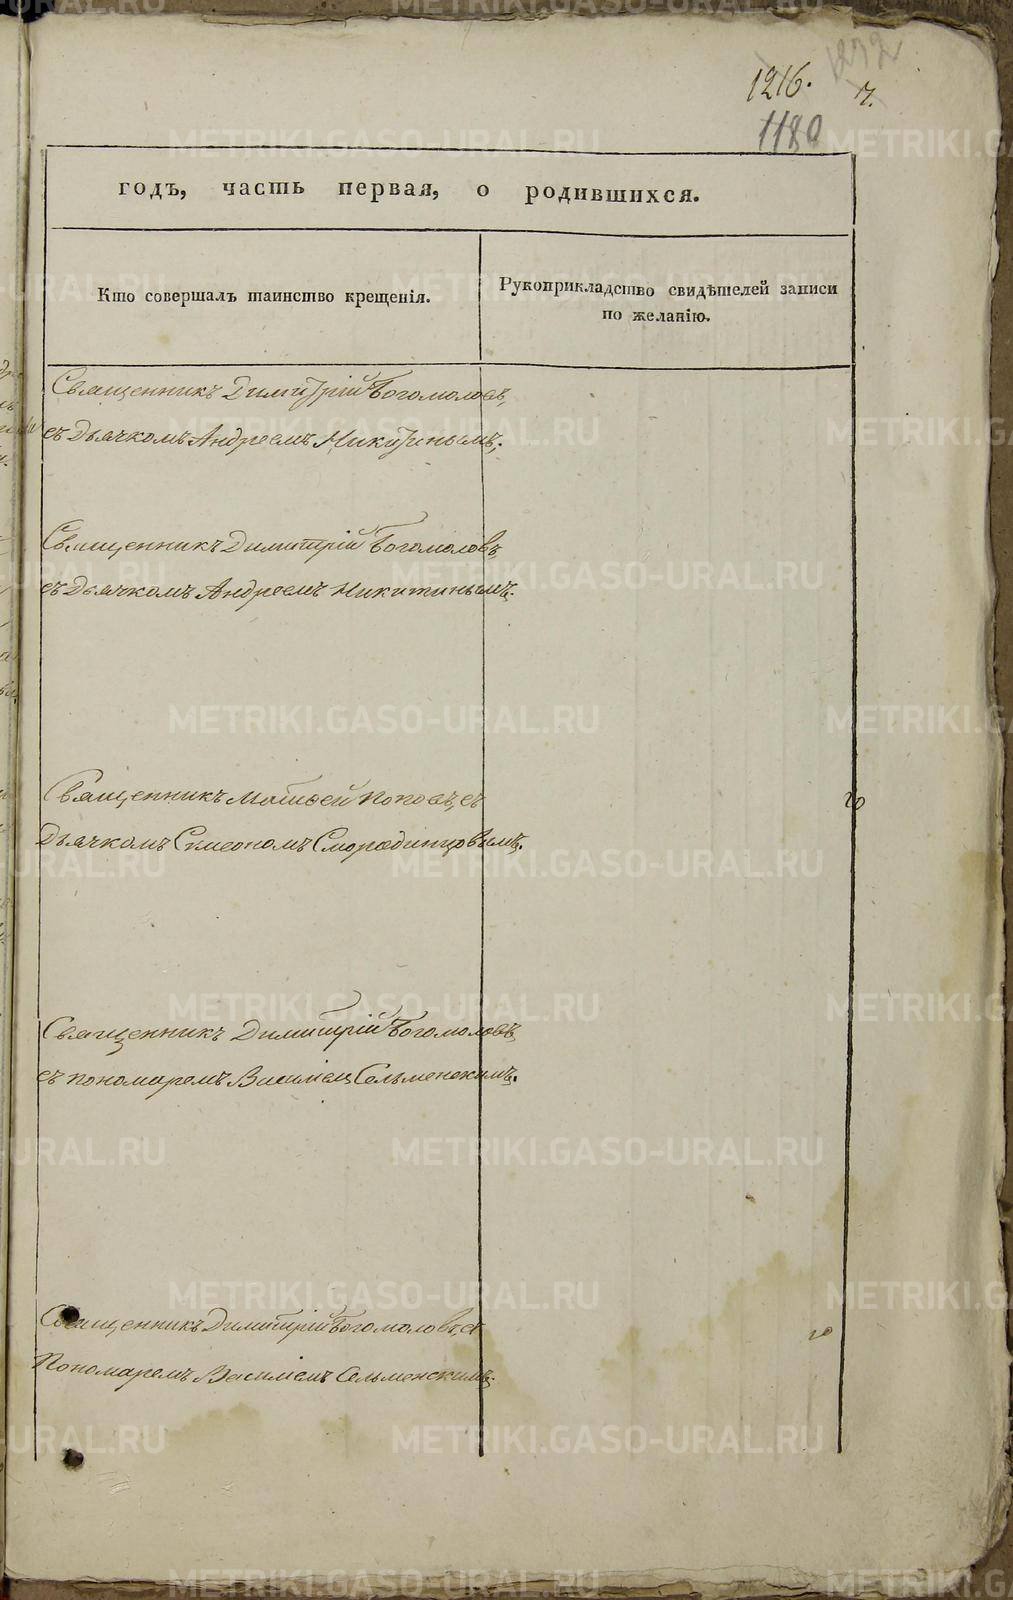 1232
1216.
1180
годъ, часть первая, о родившихся.
Кто совершалъ таинство крещенія.
Рукоприкладство свидѣтелей записи
по желанію.
Священникъ Димитрій Богомоловъ,
съ Дьячкомъ Андреемъ Никитинымъ.
Священникъ Димитрій Богомоловъ,
съ Дьячкомъ Андреемъ Никитинымъ.
Священникъ Матвей Поповъ, съ
Дьячкомъ Симеономъ Смородинцовымъ.
Священникъ Димитрій Богомоловъ
съ пономаремъ Василіемъ Сельменскимъ.
Священникъ Димитрій Богомоловъ, съ
Пономаремъ Василіемъ Сельменскимъ.
METRIKI.GASO-URAL.RU